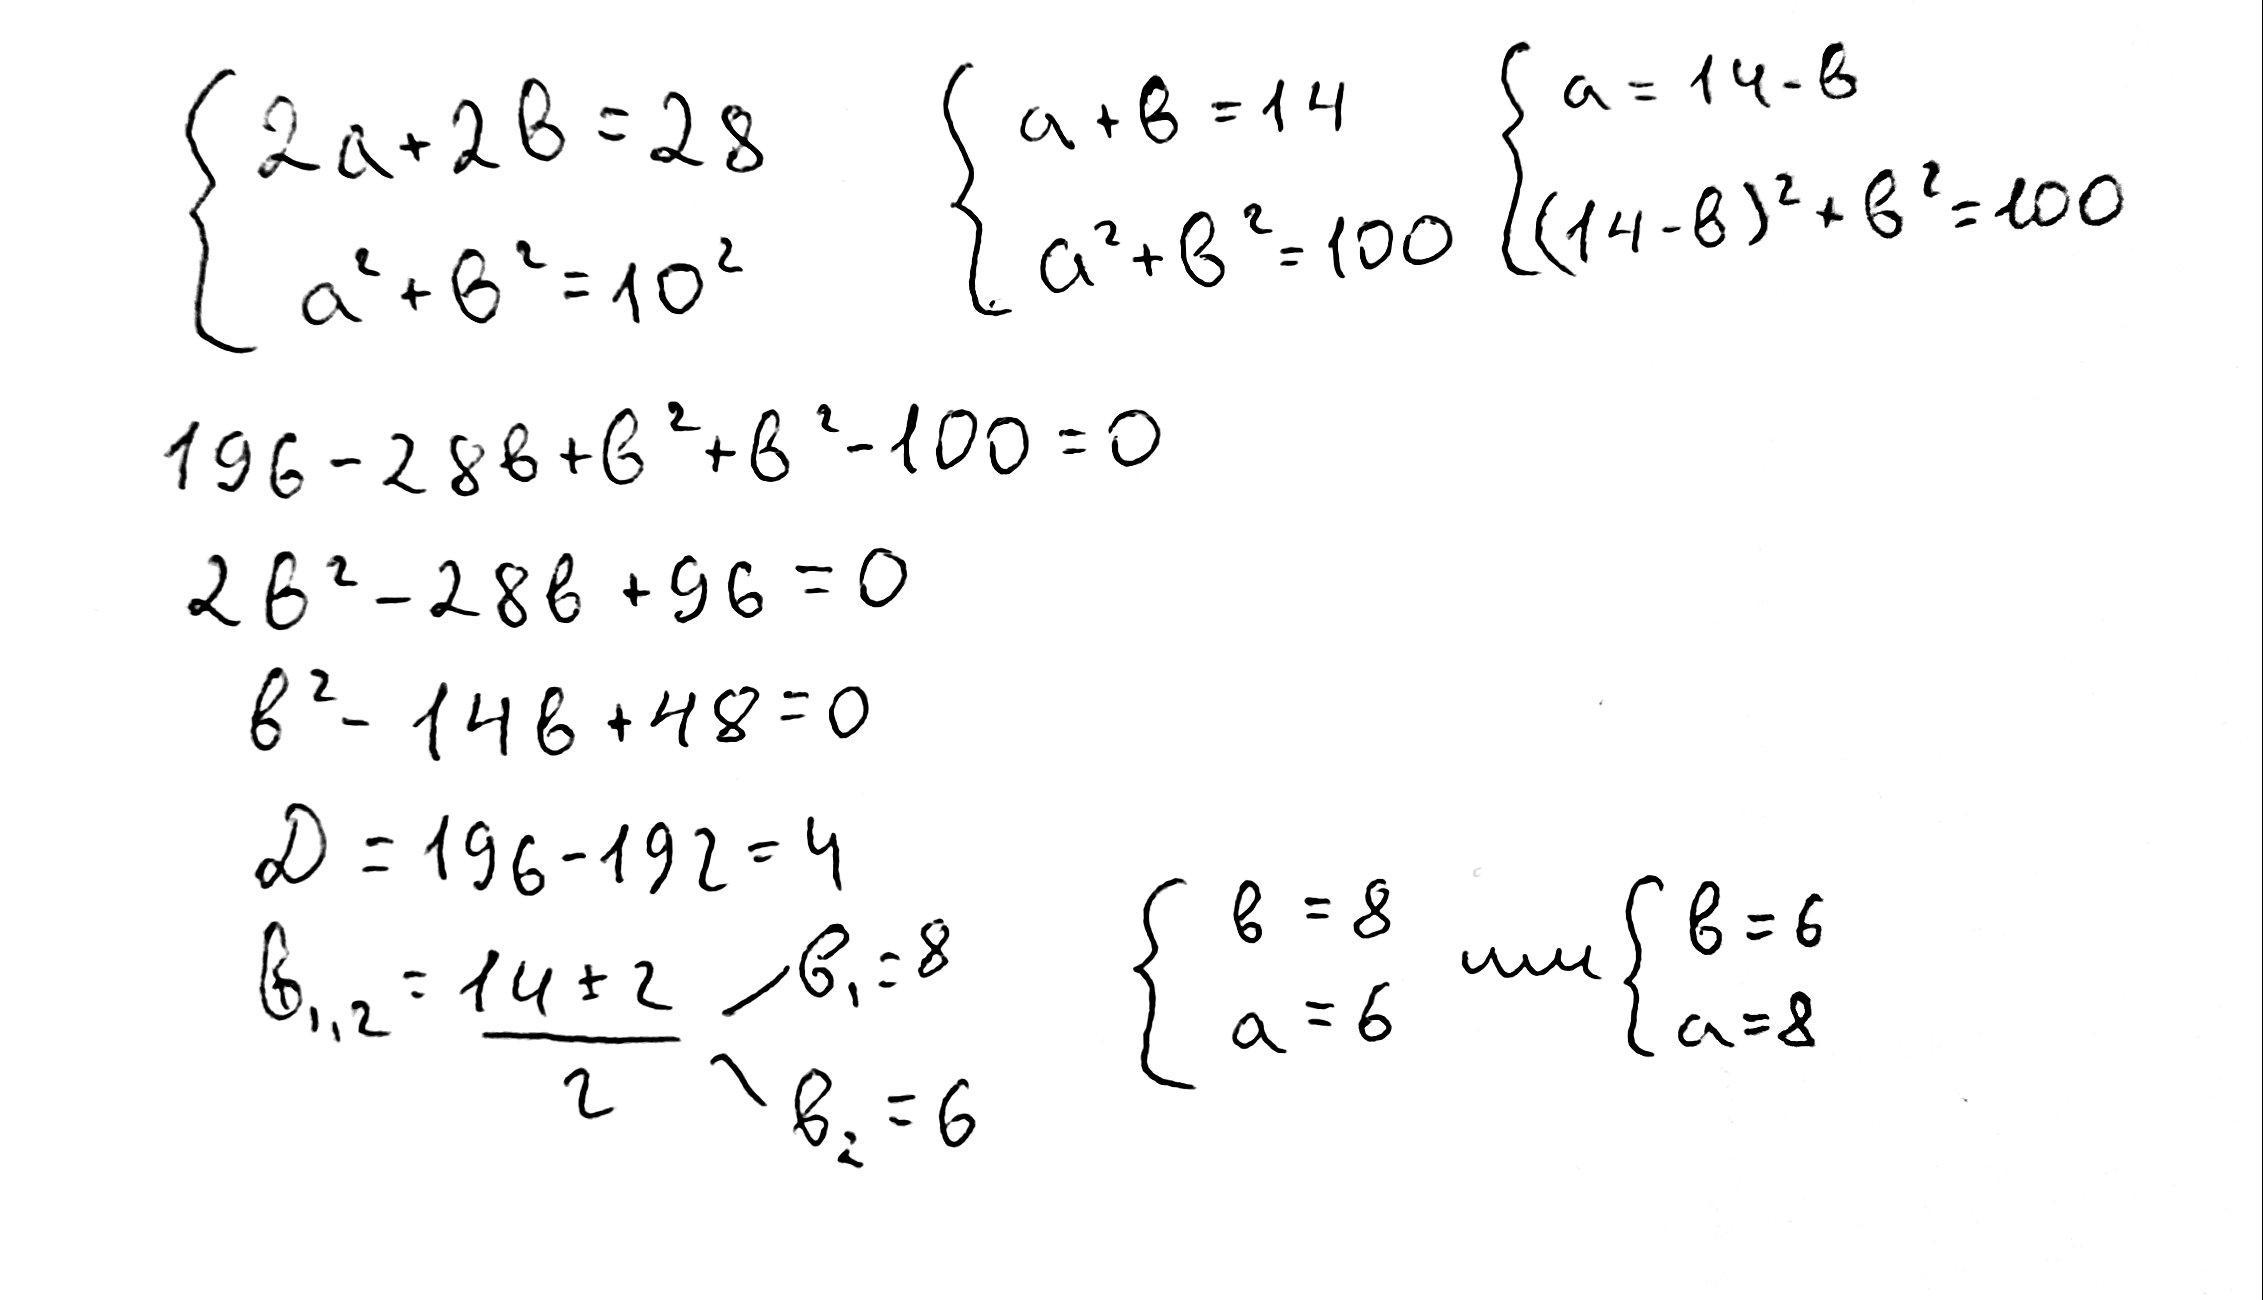 { 2a+2в=28
a²+в²=10²
{ a+в=14
a²+в²=100
{ a=14-в
(14-в)²+в²=100
196-28в+в²+в²-100=0
2в²-28в+96=0
в²-14в+48=0
D=196-192=4
в₁,₂=(14±2)/2
в₁=8
в₂=6
{ в=8
a=6
или
{ в=6
a=8